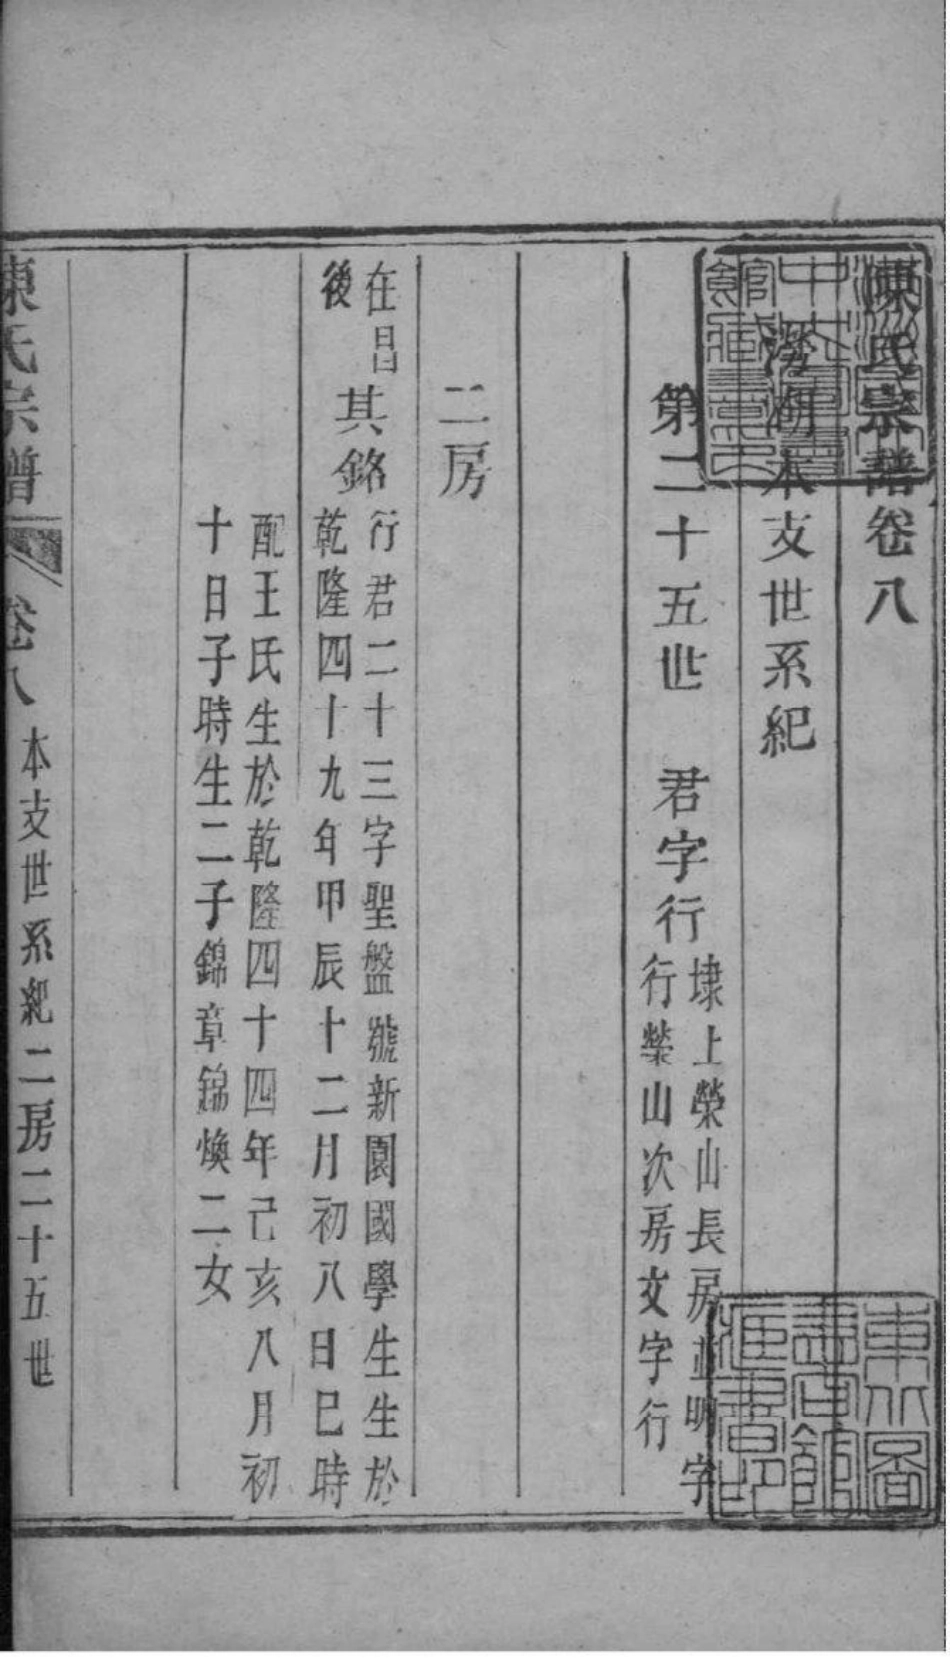 陳氏宗譜卷八
澇湖本支世系紀
第二十五世　君字行
埭上榮山長房並明字
行榮山次房文字行
二房
在昌
後
其銘
行君二十三字聖盤號新園國學生生於
乾隆四十九年甲辰十二月初八日巳時
配王氏生於乾隆四十四年己亥八月初
十日子時生二子錦章錦煥二女
陳氏宗譜
卷八
本支世系紀二房二十五世